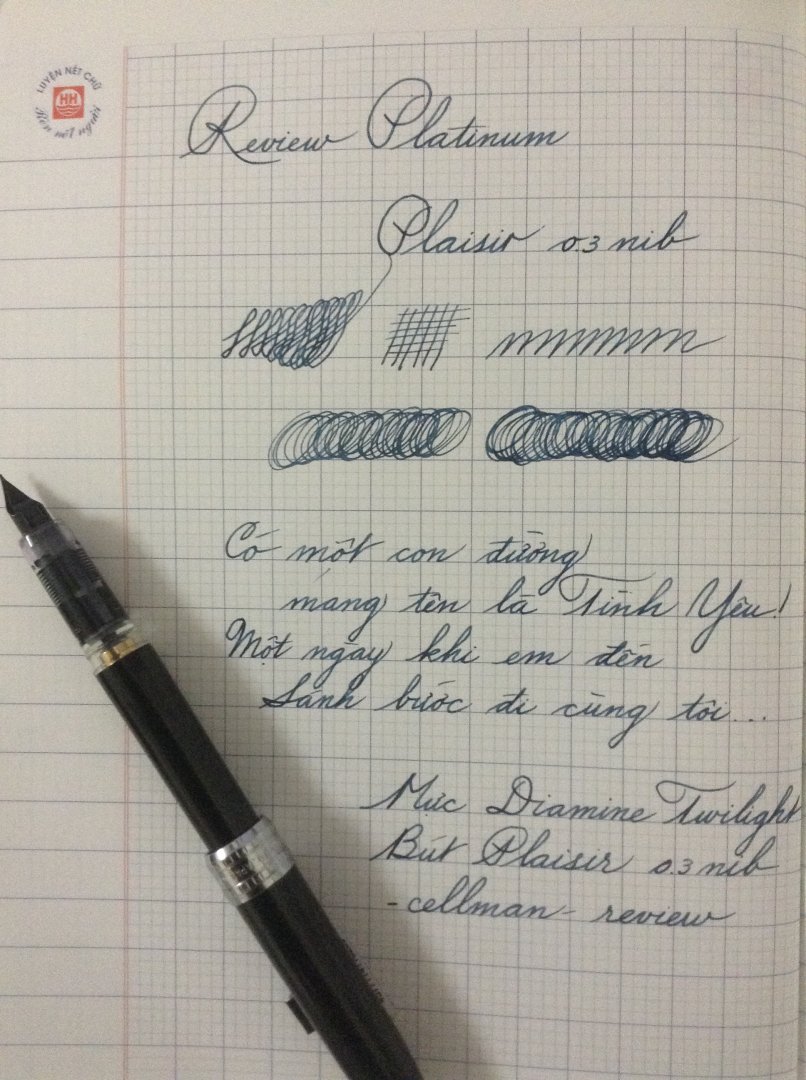 LUYỆN NÉT CHỮ
HH
Rèn nết người
Review Platinum
Plaisir 0.3 nib
Có một con đường
mang tên là Tình Yêu!
Một ngày khi em đến
Sánh bước đi cùng tôi...
Mực Diamine Twilight
Bút Plaisir 0.3 nib
-cellman- review